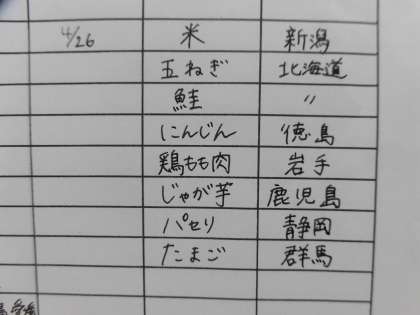 4/26 米 新潟
玉ねぎ 北海道
鮭 〃
にんじん 徳島
鶏もも肉 岩手
じゃが芋 鹿児島
パセリ 静岡
たまご 群馬